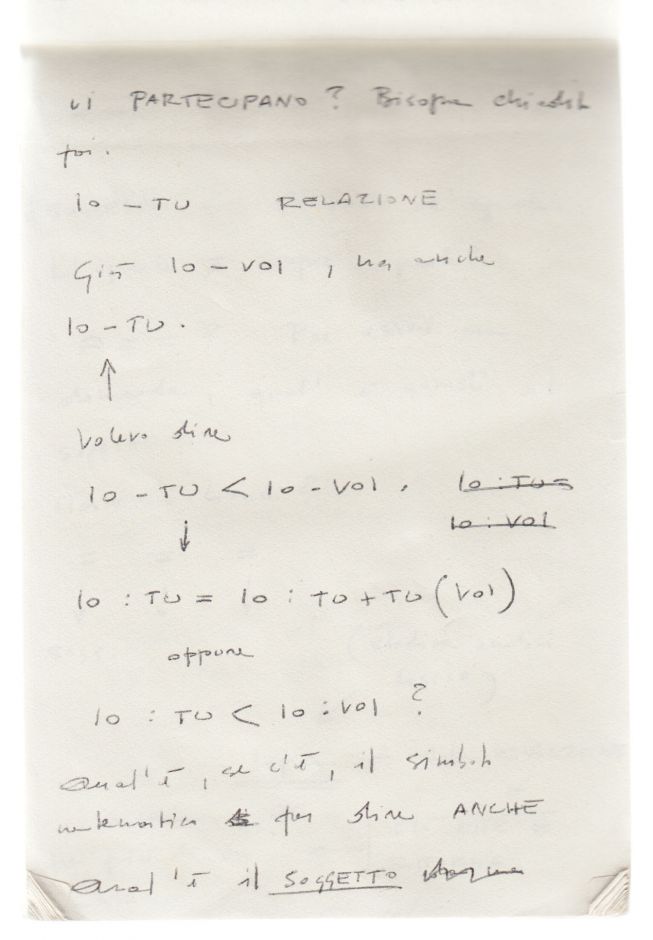 vi PARTECIPANO? Bisogna chiederlo
poi.
IO – TU RELAZIONE
Già IO – VOI, ma anche
IO – TU.
↑
Volevo dire
IO – TU < IO – VOI. IO : TU =
IO : VOI
↓
IO : TU = IO : TU + TU (VOI)
oppure
IO : TU < IO : VOI ?
Qual'è, se c'è, il simbolo
matematico per dire ANCHE
Qual'è il SOGGETTO